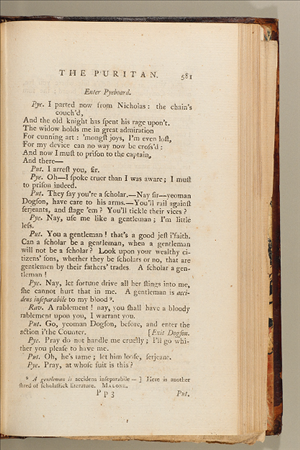 THE PURITAN. 581
Enter Pyeboard.
Pye. I parted now from Nicholas: the chain's
couch'd,
And the old knight has spent his rage upon't.
The widow holds me in great admiration
For cunning art: 'mongst joys, I'm even lost,
For my device can no way now be cross'd:
And now I must to prison to the captain,
And there—
Put. I arrest you, sir.
Pye. Oh—I spoke truer than I was aware; I must
to prison indeed.
Put. They say you're a scholar.—Nay sir—yeoman
Dogson, have care to his arms.—You'll rail against
serjeants, and stage 'em? You'll tickle their vices?
Pye. Nay, use me like a gentleman; I'm little
less.
Put. You a gentleman! that's a good jest i'faith.
Can a scholar be a gentleman, when a gentleman
will not be a scholar? Look upon your wealthy ci-
tizens' sons, whether they be scholars or no, that are
gentlemen by their fathers' trades. A scholar a gen-
tleman!
Pye. Nay, let fortune drive all her stings into me,
she cannot hurt that in me. A gentleman is acci-
dens inseparabile to my blood *.
Rav. A rablement! nay, you shall have a bloody
rablement upon you, I warrant you.
Put. Go, yeoman Dogson, before, and enter the
action i'the Counter. [Exit Dogson.
Pye. Pray do not handle me cruelly; I'll go whi-
ther you please to have me.
Put. Oh, he's tame; let him loose, serjeant.
Pye. Pray, at whose suit is this?
* A gentleman is accidens inseparabile—] Here is another
shred of scholastick literature. MALONE.
P p 3 Put.